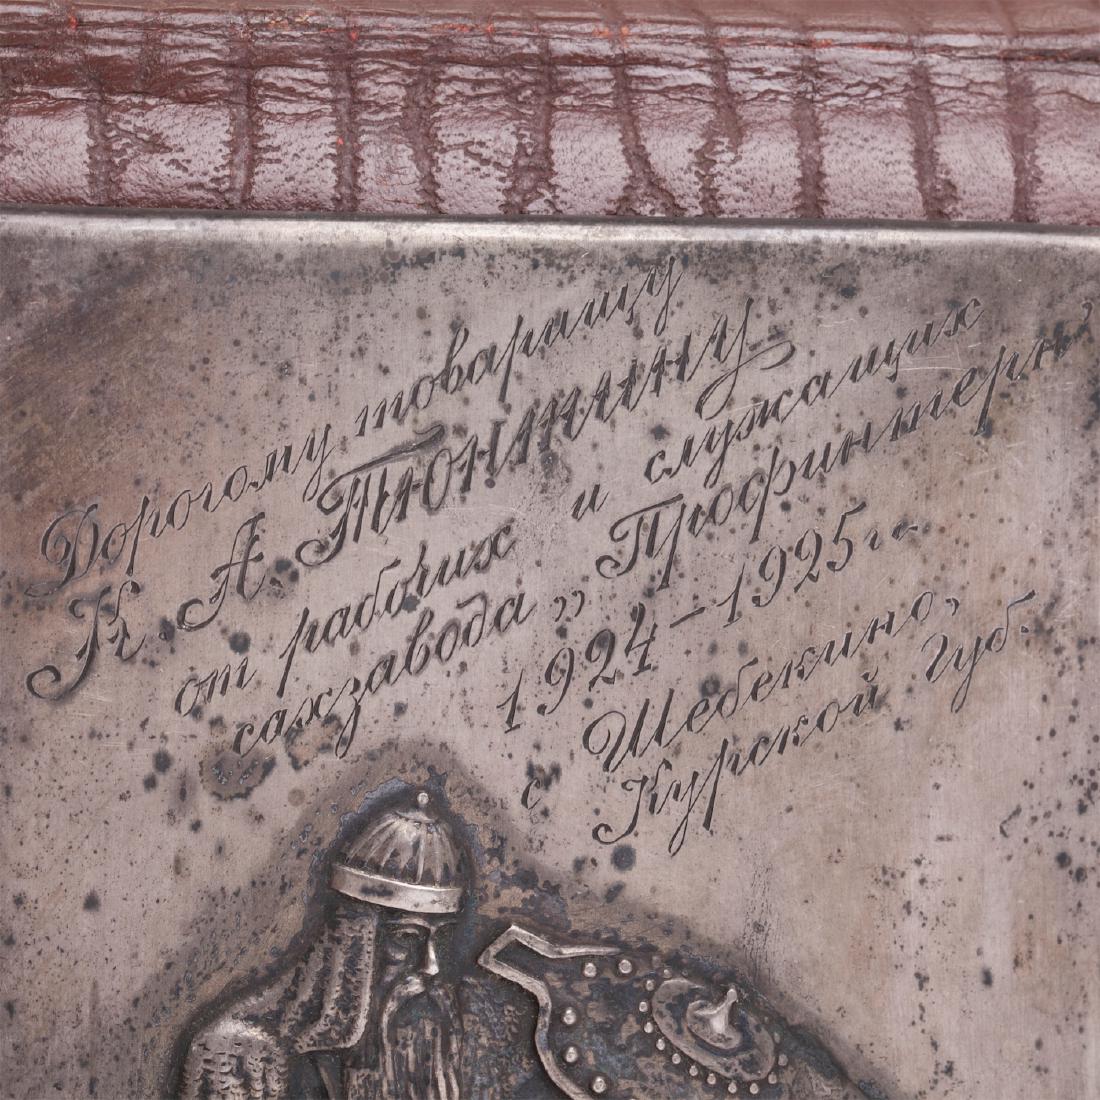 Дорогому товарищу
К. А. ТЮНИНУ
от рабочих и служащих
сахзавода „Профинтерн”
1924–1925 г.
с Шебекино,
Курской губ.